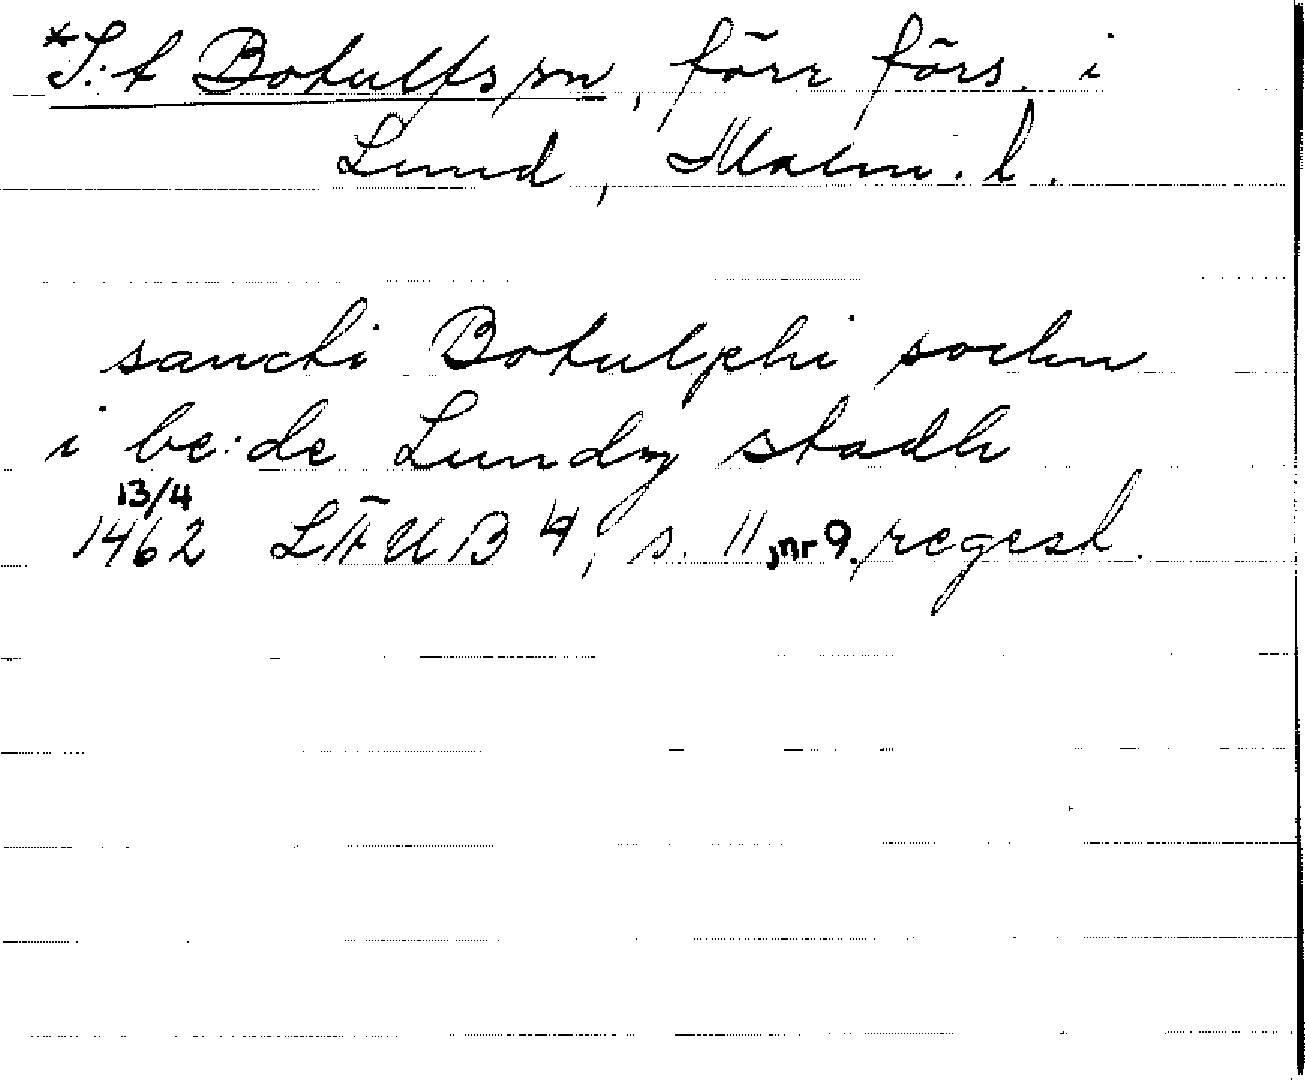 *S:t Botulfs sn, förr förs. i
Lund, Malm. l.
sancti Botulphi sochn
i be:de Lundz stadh
13/4
1462 LÄUB 4, s. 11, nr 9. regest.